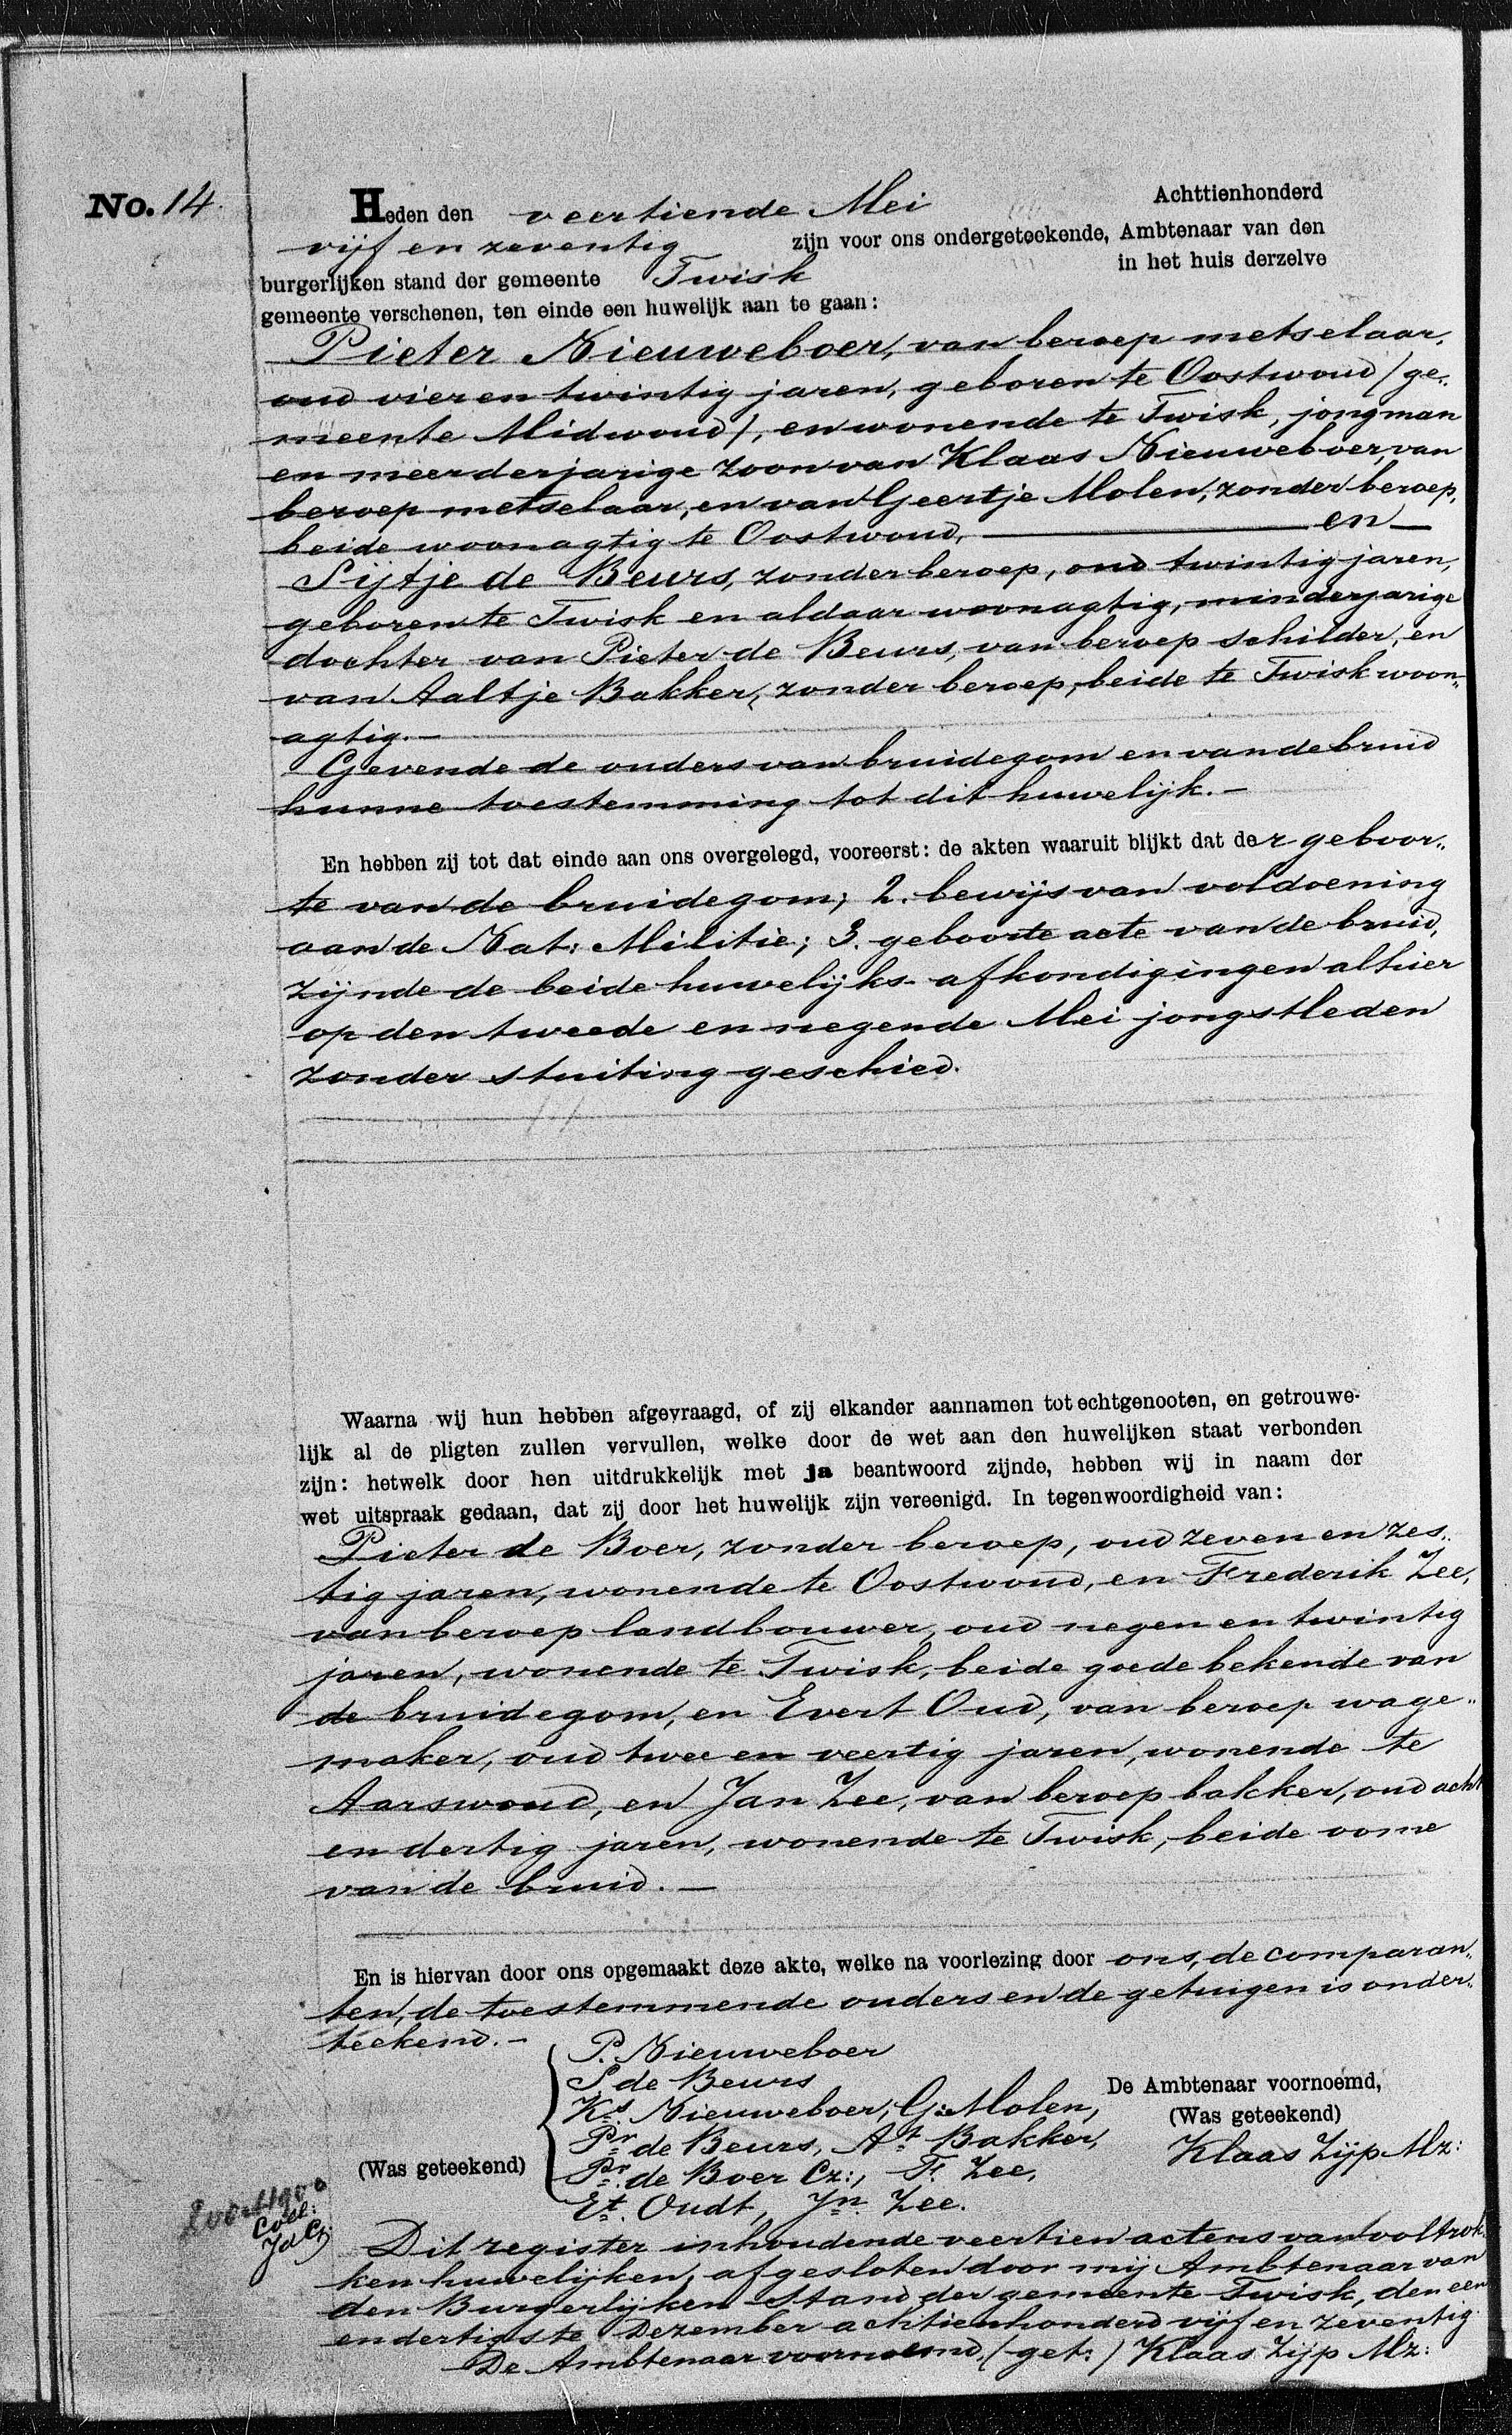 No. 14.
Heden den veertiende Mei Achttienhonderd
vijf en zeventig zijn voor ons ondergeteekende, Ambtenaar van den
burgerlijken stand der gemeente Twisk in het huis derzelve
gemeente verschenen, ten einde een huwelijk aan te gaan:
Pieter Nieuweboer, van beroep metselaar,
oud vier en twintig jaren, geboren te Oostwoud (ge„
meente Midwoud), en wonende te Twisk, jongman
en meerderjarige zoon van Klaas Nieuweboer, van
beroep metselaar, en van Geertje Molen, zonder beroep,
beide woonagtig te Oostwoud, — en —
Sijtje de Beurs, zonder beroep, oud twintig jaren,
geboren te Twisk en aldaar woonagtig, minderjarige
dochter van Pieter de Beurs, van beroep schilder, en
van Aaltje Bakker, zonder beroep, beide te Twisk woon„
agtig. —
Gevende de ouders van bruidegom en van de bruid
hunne toestemming tot dit huwelijk. —
En hebben zij tot dat einde aan ons overgelegd, vooreerst: de akten waaruit blijkt dat der geboor„
te van de bruidegom; 2. bewijs van voldoening
aan de Nat: Militie; 3. geboorte acte van de bruid,
zijnde de beide huwelijks-afkondigingen alhier
op den tweede en negende Mei jongstleden
zonder stuiting geschied.
Waarna wij hun hebben afgevraagd, of zij elkander aannamen tot echtgenooten, en getrouwe-
lijk al de pligten zullen vervullen, welke door de wet aan den huwelijken staat verbonden
zijn: hetwelk door hen uitdrukkelijk met ja beantwoord zijnde, hebben wij in naam der
wet uitspraak gedaan, dat zij door het huwelijk zijn vereenigd. In tegenwoordigheid van:
Pieter de Boer, zonder beroep, oud zeven en zes„
tig jaren, wonende te Oostwoud, en Frederik Zee,
van beroep landbouwer, oud negen en twintig
jaren, wonende te Twisk, beide goede bekende van
de bruidegom, en Evert Oud, van beroep wage„
maker, oud twee en veertig jaren, wonende te
Aarswoud, en Jan Zee, van beroep bakker, oud acht
en dertig jaren, wonende te Twisk, beide oome
van de bruid. —
En is hiervan door ons opgemaakt deze akte, welke na voorlezing door ons, de comparan„
ten, de toestemmende ouders en de getuigen is onder„
teekend. —
P. Nieuweboer
S de Beurs
Ks. Nieuweboer, G: Molen,
Pr de Beurs, At Bakker,
(Was geteekend) Pr. de Boer Cz:, F. Zee,
Et. Oudt, Jn. Zee.
De Ambtenaar voornoemd,
(Was geteekend)
Klaas Zijp Mz:
Coll:
Dit register inhoudende veertien actens van voltrok„
ken huwelijken, afgesloten door mij Ambtenaar van
den Burgerlijken Stand der gemeente Twisk, den een
en dertigste Dezember achtienhonderd vijf en zeventig
De Ambtenaar voornoemd, (get:) Klaas Zijp Mz: